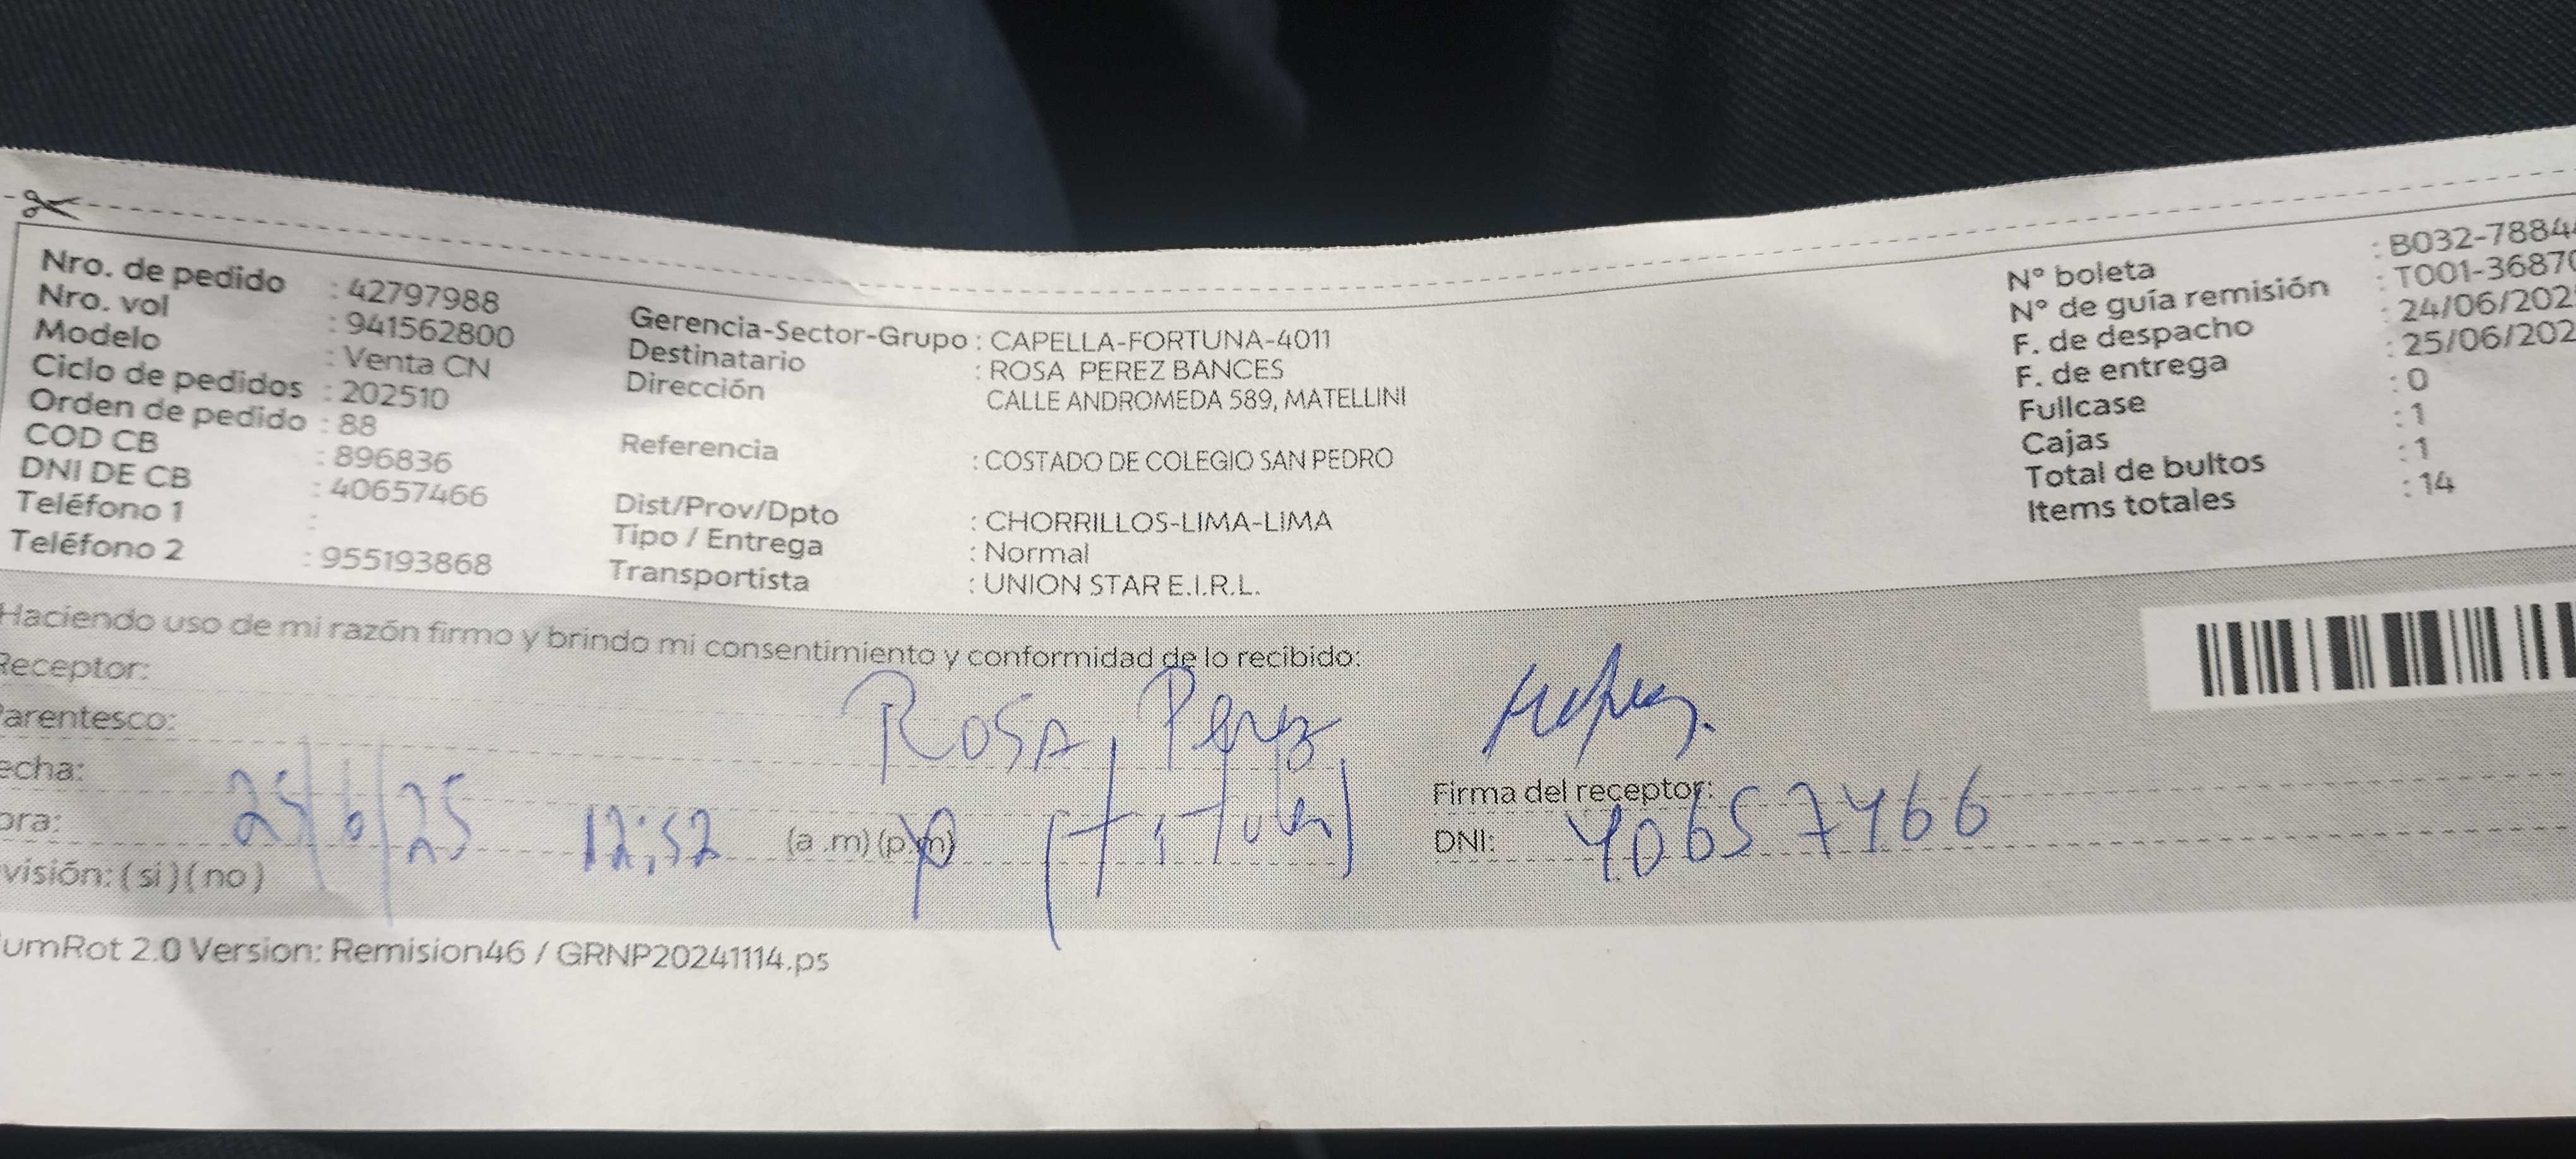 Nro. de pedido : 42797988
Nro. vol : 941562800
Modelo : Venta CN
Ciclo de pedidos : 202510
Orden de pedido : 88
COD CB : 896836
DNI DE CB : 40657466
Teléfono 1 :
Teléfono 2 : 955193868
Gerencia-Sector-Grupo : CAPELLA-FORTUNA-4011
Destinatario : ROSA PEREZ BANCES
Dirección CALLE ANDROMEDA 589, MATELLINI
Referencia : COSTADO DE COLEGIO SAN PEDRO
Dist/Prov/Dpto : CHORRILLOS-LIMA-LIMA
Tipo / Entrega : Normal
Transportista : UNION STAR E.I.R.L.
N° boleta : B032-7884
N° de guía remisión : T001-3687
F. de despacho : 24/06/202
F. de entrega : 25/06/202
Fullcase : 0
Cajas : 1
Total de bultos : 1
Items totales : 14
Haciendo uso de mi razón firmo y brindo mi consentimiento y conformidad de lo recibido:
Receptor: Rosa Perez
arentesco: (titular)
echa: 25/6/25
ora: 12:52 (a .m) (p.m)
visión: ( si ) ( no )
Firma del receptor:
DNI: 40657466
umRot 2.0 Version: Remision46 / GRNP20241114.ps